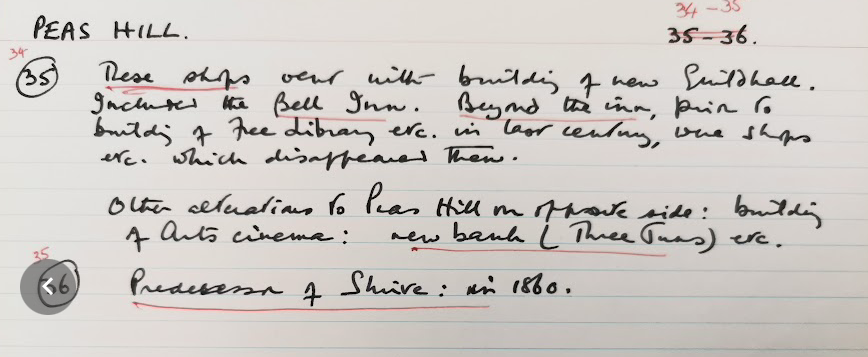 34 - 35
PEAS HILL. 35-36.
34
35 These shops went with building of new Guildhall.
Included the Bell Inn. Beyond the inn, prior to
building of Free Library etc. in last century, were shops
etc. which disappeared then.
Other alterations to Peas Hill on opposite side: building
of Arts cinema: new bank (Three Tuns) etc.
35
36 Predecessor of Shrive: in 1860.